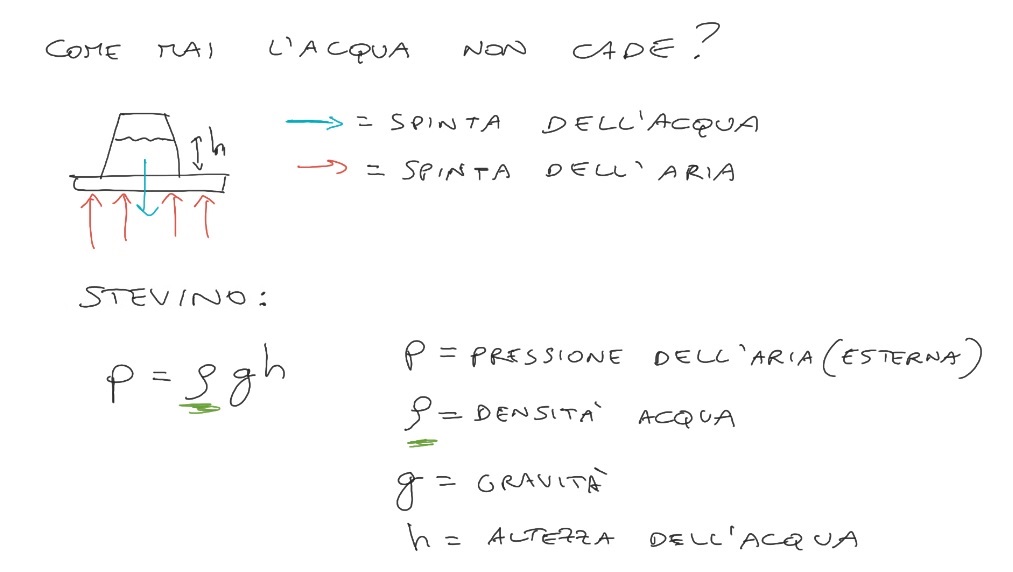 COME MAI L'ACQUA NON CADE?
h
→ = SPINTA DELL'ACQUA
→ = SPINTA DELL'ARIA
STEVINO:
p = ρgh
p = PRESSIONE DELL'ARIA (ESTERNA)
ρ = DENSITÀ ACQUA
g = GRAVITÀ
h = ALTEZZA DELL'ACQUA